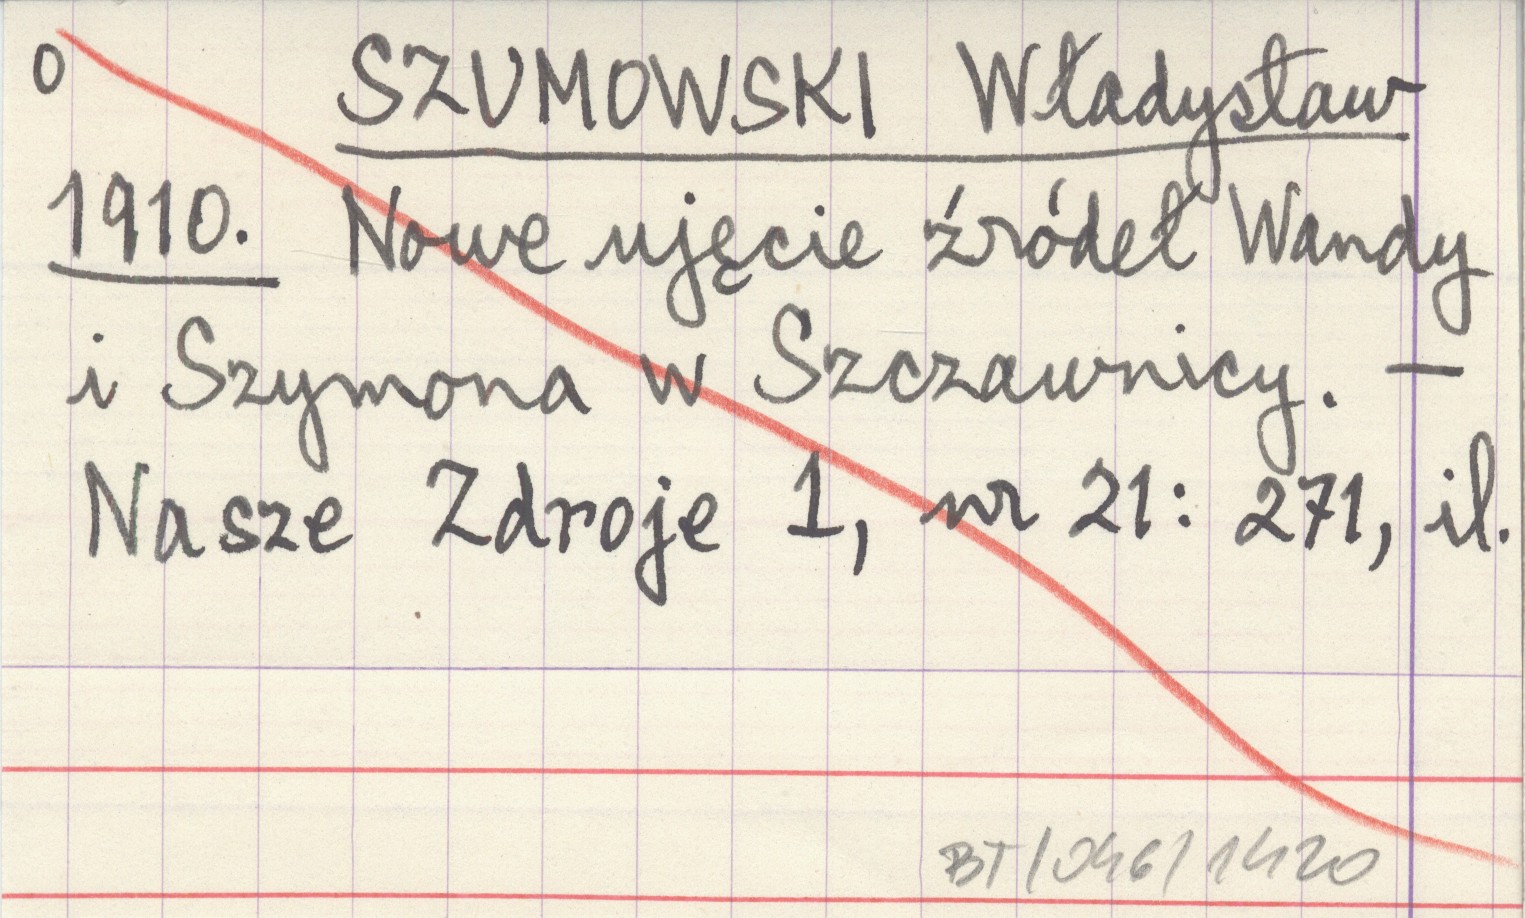 o SZUMOWSKI Władysław
1910. Nowe ujęcie źródeł Wandy
i Szymona w Szczawnicy. —
Nasze Zdroje 1, nr 21: 271, il.
BT/046/1420